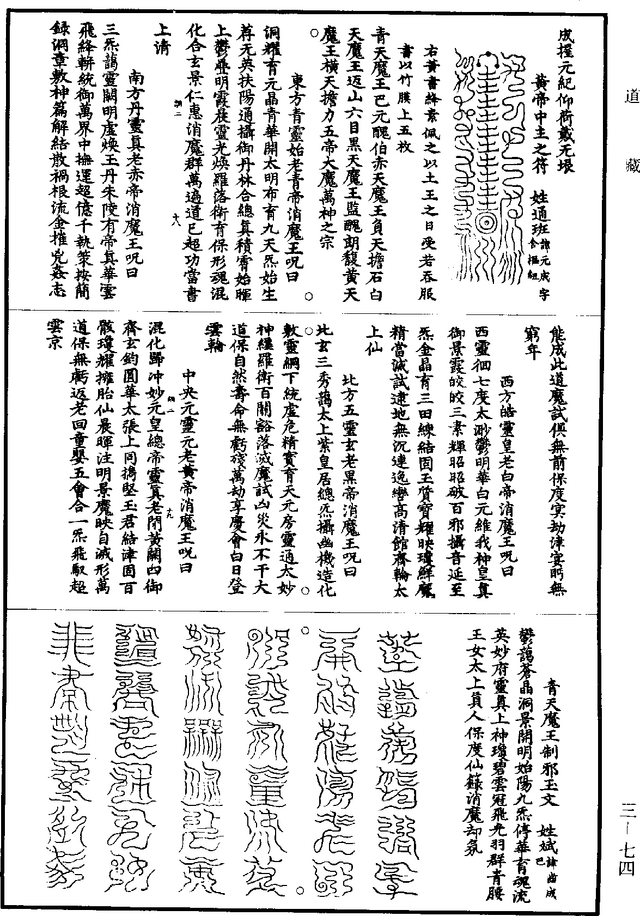 道藏
成握元紀仰荷戴无垠
黃帝中主之符 姓通班諱元成字
右黃書絳素佩之以土王之日受若吞服
書以竹膜上五枚
青天魔王巴元醜伯赤天魔王負天擔石白
天魔王反山六目黑天魔王監醜朗馥黃天
魔王橫天擔力五帝大魔萬神之宗
東方青靈始老青帝消魔王呪曰
洞耀育元晶青華開太明布育九天炁始生
苒元英扶陽通攝御丹林合總真積霄始暉
上鬱鼎明霞晨靈光煥羅落衛育保形魂混
化合玄景仁惠消魔群萬過道已超功當書
上清
南方丹靈真老赤帝消魔王呪曰
三炁藹靈關明虛煥王丹朱陵有帝真華雲
飛絳軿統御萬界中撫運超億千執策按簡
錄洞章敷神篇解結散禍根流金摧兇姦志
能成此道魔試俱無前保度冥劫津宴眄無
窮年
西方皓靈皇老白帝消魔王呪曰
西靈徊七度太渺鬱明華白元維我神皇真
御景霞皎皎三素輝昭昭破百邪攝音延至
炁金晶育三田練結固王質寶耀映瓊鮮魔
精當滅試逮地無沉連逸巒高清館齊輪太
上仙
北方五靈玄老黑帝消魔王呪曰
北玄三秀藹太上紫皇居總炁攝幽機造化
敷靈綱下統虛危精寶育天元房靈通太妙
神纏羅衛百關豁落滅魔試凶災永不干大
道保自然壽命無虧殘萬劫享慶會白日登
雲輪
中央元靈元老黃帝消魔王呪曰
混化歸沖妙元皇總帝靈真老門黃闕四御
齊玄鈞圓華太張上同攜堅玉君結津固百
骸瓊耀擁胎仙晨暉注明景魔映自滅形萬
道保無虧返老回童嬰五會合一炁飛馭超
雲京
青天魔王制邪玉文 姓斌諱齒成
鬱藹蒼晶洞景開明始陽九炁停華育魂流
英妙府靈真上神瓊碧雲冠飛光羽群青腰
王女太上真人保度仙籙消魔却氛
三—七四